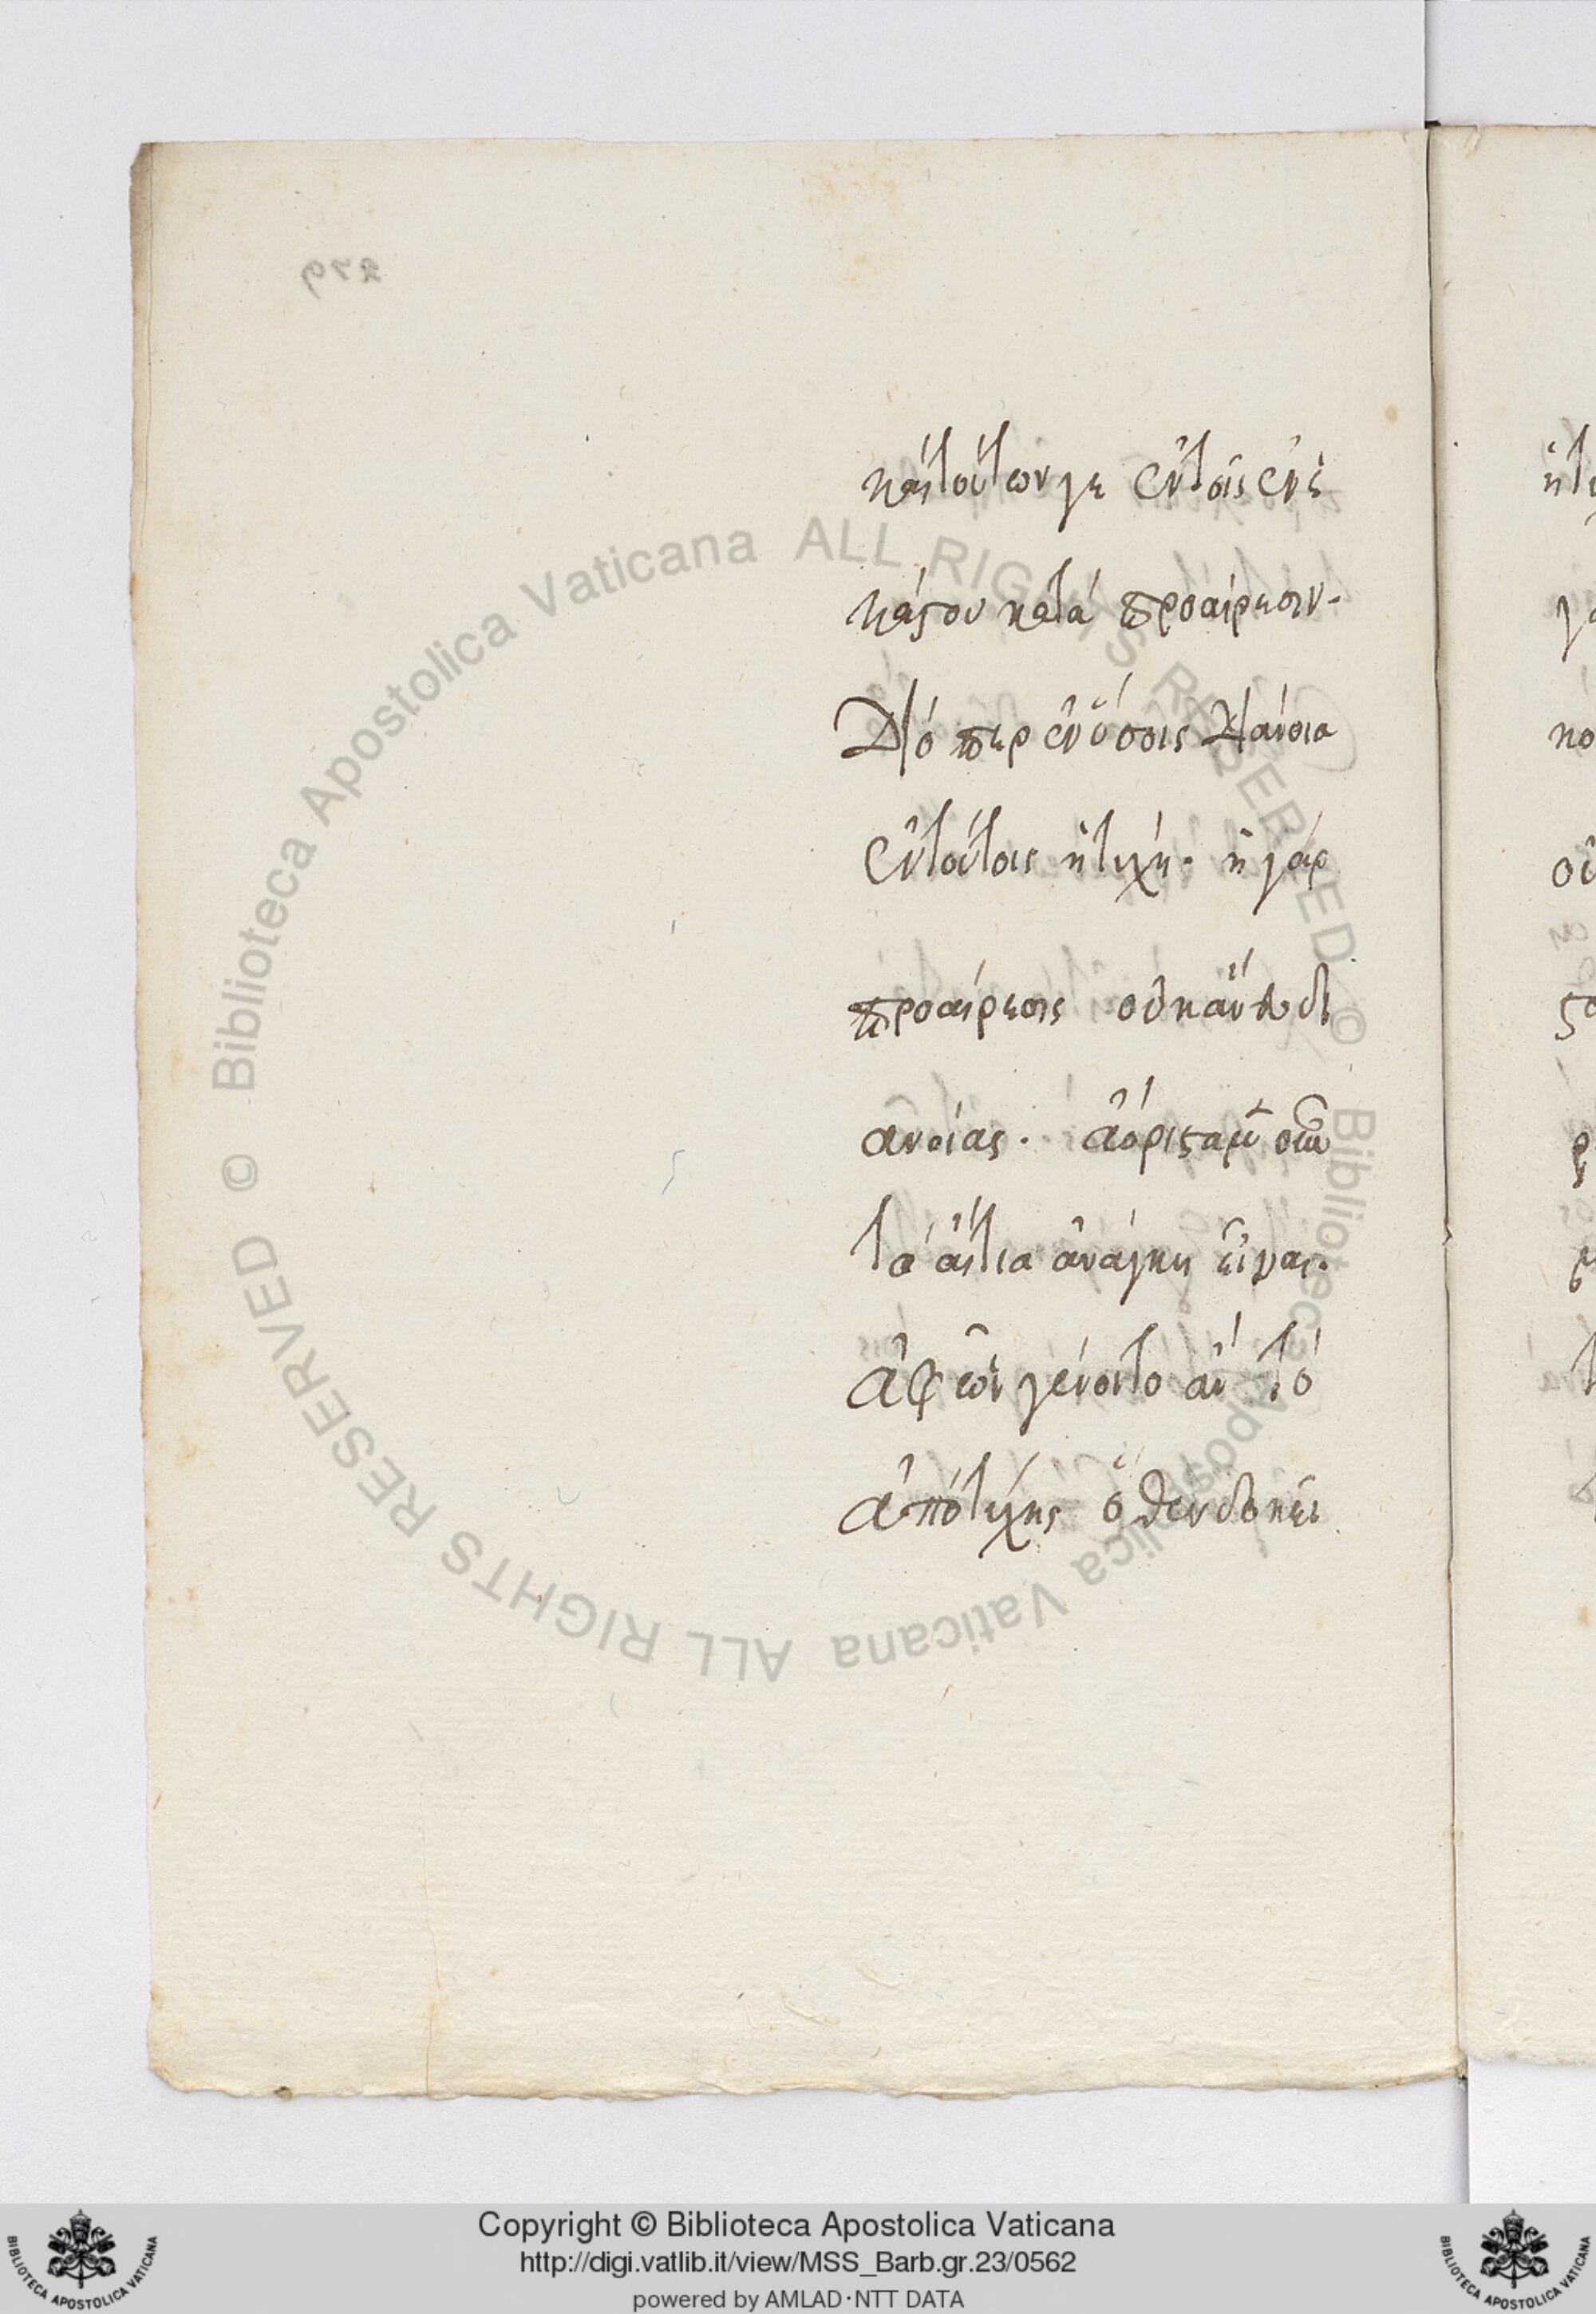 279
καὶ τούτων γε ἐν τοῖς ἕνε
κά του κατὰ προαίρεσιν.
Διό περ ἐν ὅσοις διάνοια
ἐν τούτοις ἡ τύχη. ἡ γὰρ
προαίρεσις οὐκ ἄνευ δι
ανοίας. ἀόριστα μὲν οὖν
τὰ αἴτια ἀνάγκη εἶναι.
ἀφ' ὧν γένοιτο ἂν τὸ
ἀπὸ τύχης ὅθεν δοκεῖ
© Biblioteca Apostolica Vaticana ALL RIGHTS RESERVED © Biblioteca Apostolica Vaticana ALL RIGHTS RESERVED
Copyright © Biblioteca Apostolica Vaticana
http://digi.vatlib.it/view/MSS_Barb.gr.23/0562
powered by AMLAD·NTT DATA
BIBLIOTECA APOSTOLICA VATICANA
BIBLIOTECA APOSTOLICA VATICANA